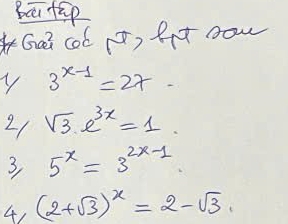 Bài tập
* Giải các pt, bpt sau
1, 3^{x-1} = 27.
2, √3. e^{3x} = 1.
3, 5^x = 3^{2x-1}
4, (2+√3)^x = 2-√3.